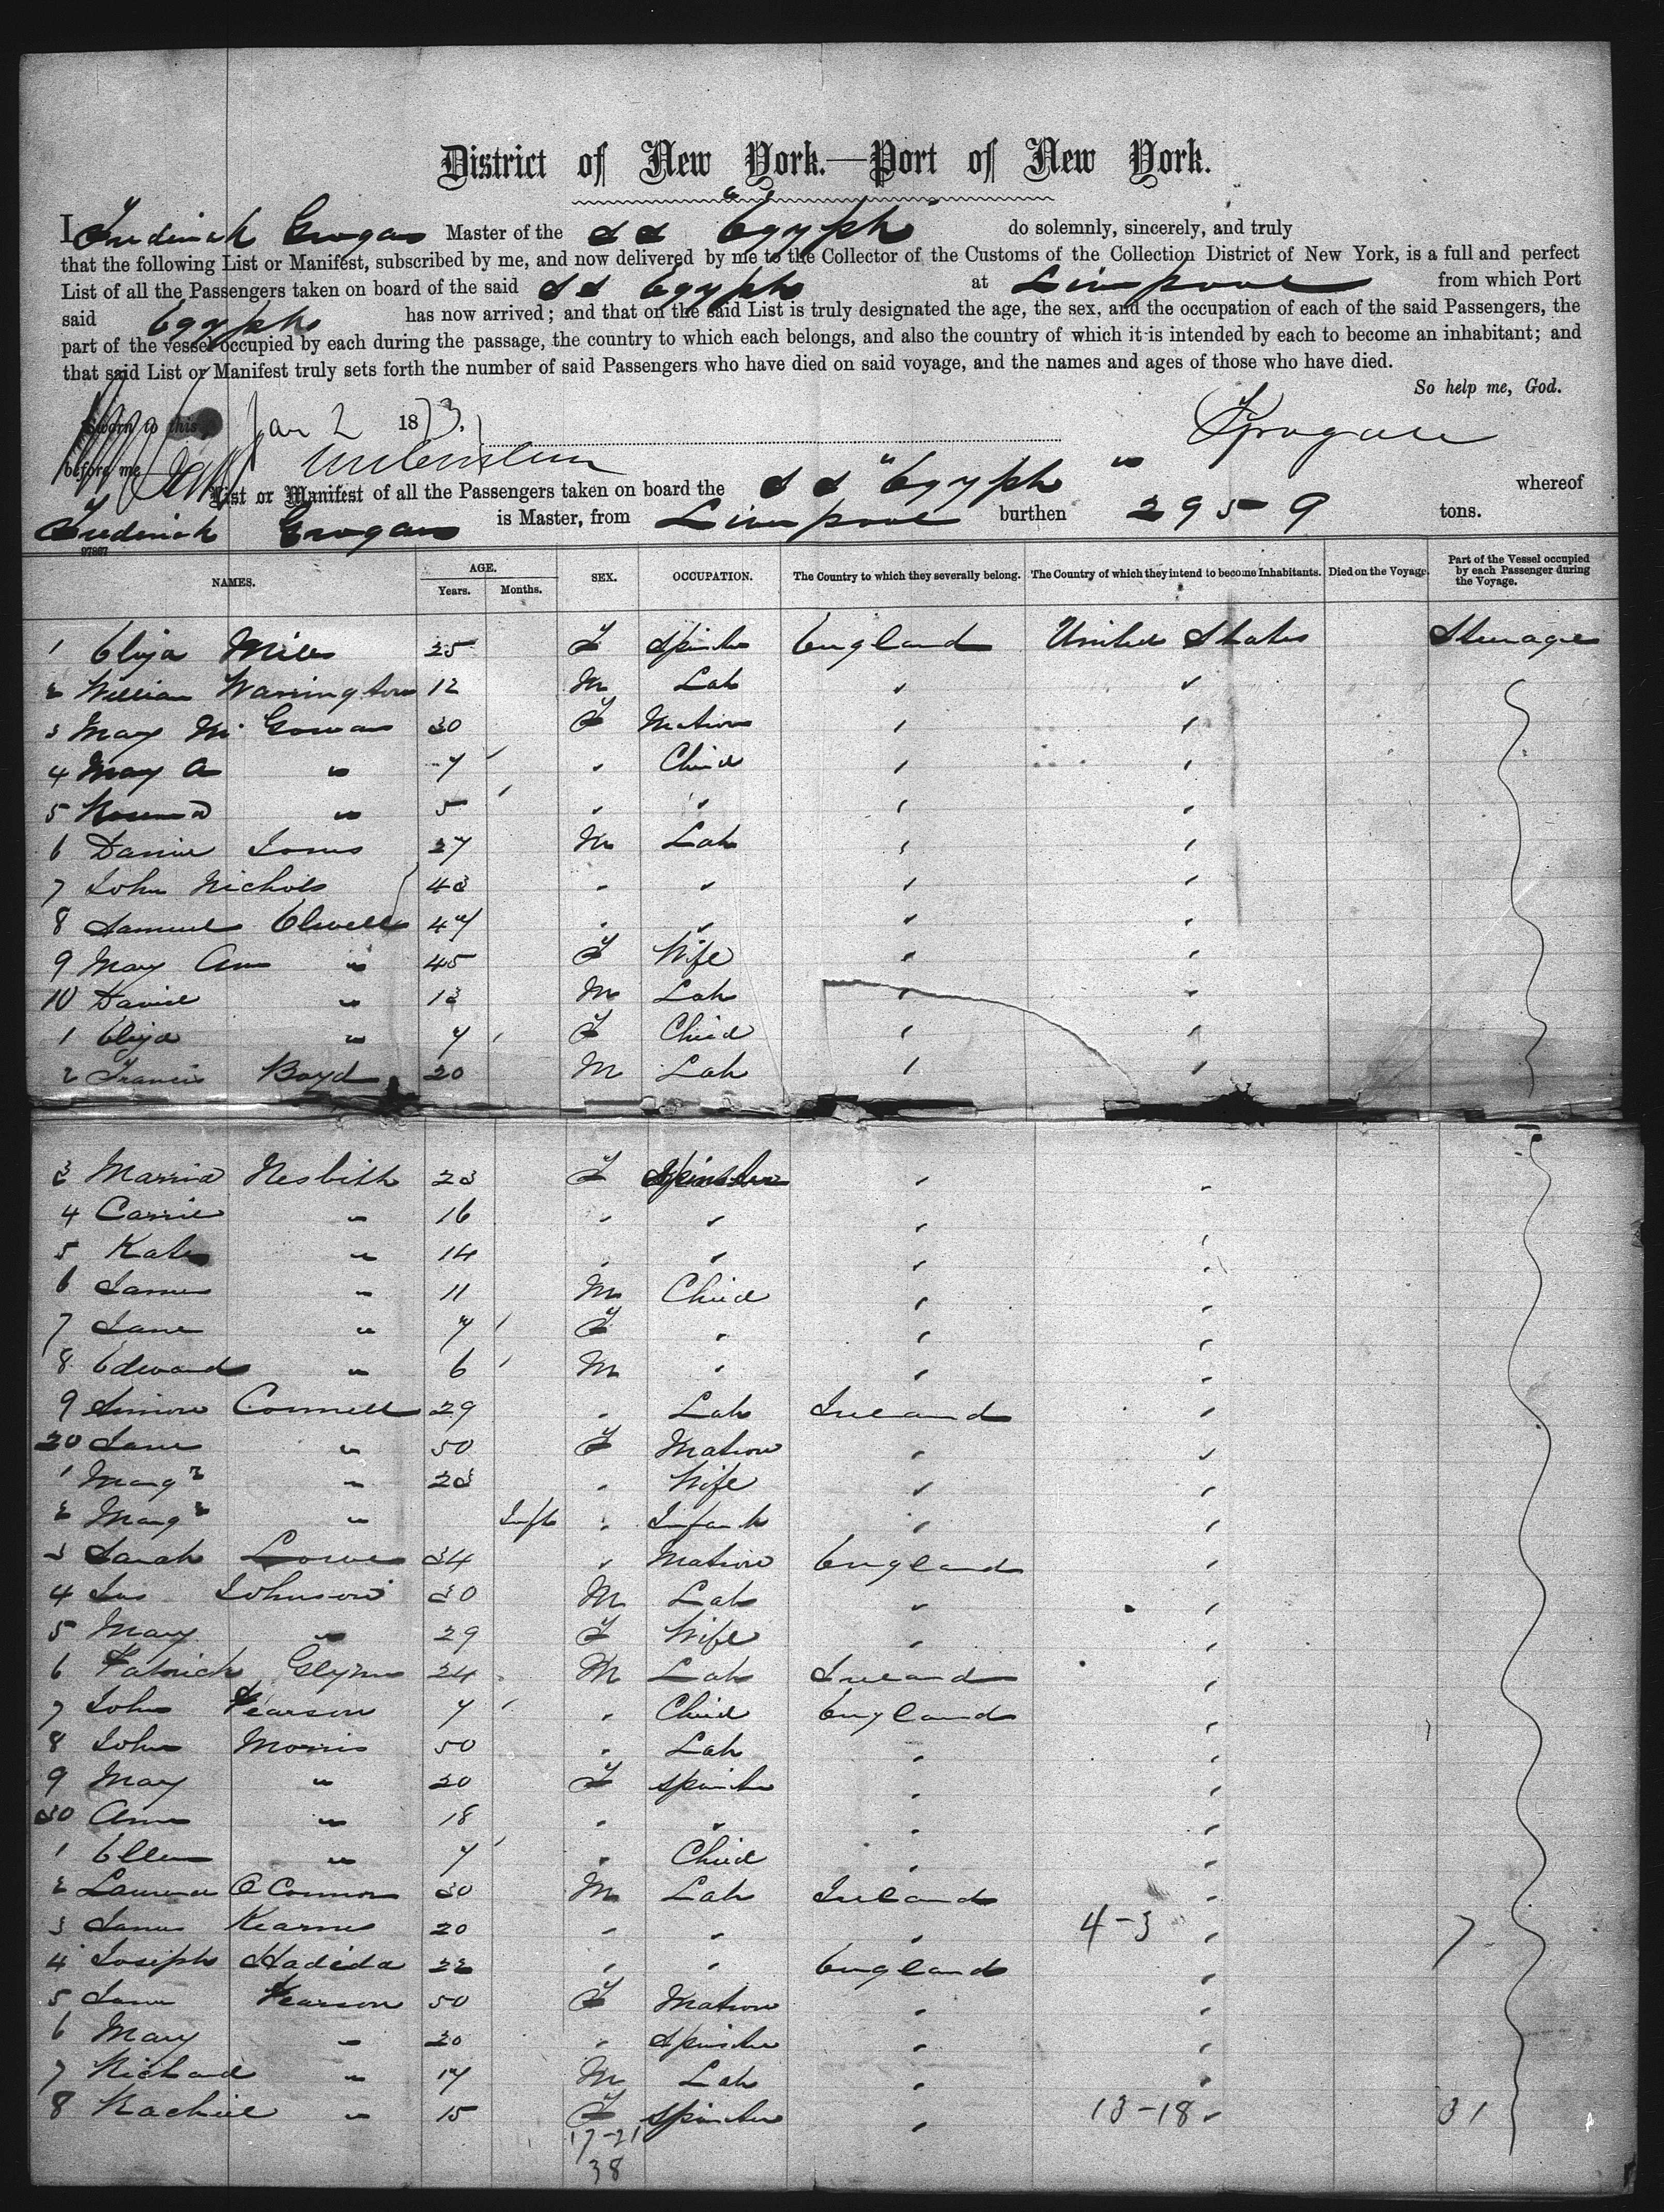 District of New York.—Port of New York.
I Frederick Grogan Master of the S S "Egypt" do solemnly, sincerely, and truly
that the following List or Manifest, subscribed by me, and now delivered by me to the Collector of the Customs of the Collection District of New York, is a full and perfect
List of all the Passengers taken on board of the said S S Egypt at Liverpool from which Port
said Egypt has now arrived; and that on the said List is truly designated the age, the sex, and the occupation of each of the said Passengers, the
part of the vessel occupied by each during the passage, the country to which each belongs, and also the country of which it is intended by each to become an inhabitant; and
that said List or Manifest truly sets forth the number of said Passengers who have died on said voyage, and the names and ages of those who have died.
So help me, God.
Sworn to this Jan 2 1873. FGrogan
before me
List or Manifest of all the Passengers taken on board the S S "Egypt" whereof
Frederick Grogan is Master, from Liverpool burthen 2959 tons.
97867
NAMES. AGE. Years. Months. SEX. OCCUPATION. The Country to which they severally belong. The Country of which they intend to become Inhabitants. Died on the Voyage. Part of the Vessel occupied by each Passenger during the Voyage.
1 Eliza Mills 25 F Spinster England United States Steerage
2 William Warrington 12 M Lab " "
3 Mary Mc Gowan 30 F Matron " "
4 Mary A " 7 " Child " "
5 " 5 " " " "
6 Daniel Jones 27 M Lab " "
7 John Nichols 43 " " " "
8 Samuel Elwell 47 " " " "
9 Mary Ann " 45 F Wife " "
10 Daniel " 13 M Lab " "
1 Eliza " 7 F Child " "
2 Francis Boyd 20 M Lab " "
3 Nesbith 23 F Spinster " "
4 Carrie " 16 " " " "
5 Kate " 14 " " " "
6 James " 11 M Child " "
7 Jane " 7 F " " "
8 Edward " 6 M " " "
9 Simon Connell 29 " Lab Ireland "
20 Jane " 50 F Matron " "
1 Margt " 23 " Wife " "
2 Margt " Inft " Infant " "
3 Sarah Lowe 34 " Matron England "
4 Jas Johnson 30 M Lab " "
5 Mary " 29 F Wife " "
6 Patrick Glynn 24 M Lab Ireland "
7 John Pearson 7 " Child England "
8 John Morris 50 " Lab " "
9 Mary " 20 F Spinster " "
30 Ann " 18 " " " "
1 Ellen " 7 " Child " "
2 Laurence O'Connor 30 M Lab Ireland "
3 James Kearns 20 " " " 4-3 " 7
4 Joseph Hadida 22 " " England "
5 Jane Pearson 50 F Matron " "
6 Mary " 20 " Spinster " "
7 Richard " 17 M Lab " "
8 Rachael " 15 F Spinster " 13-18 " 31
17-21
38